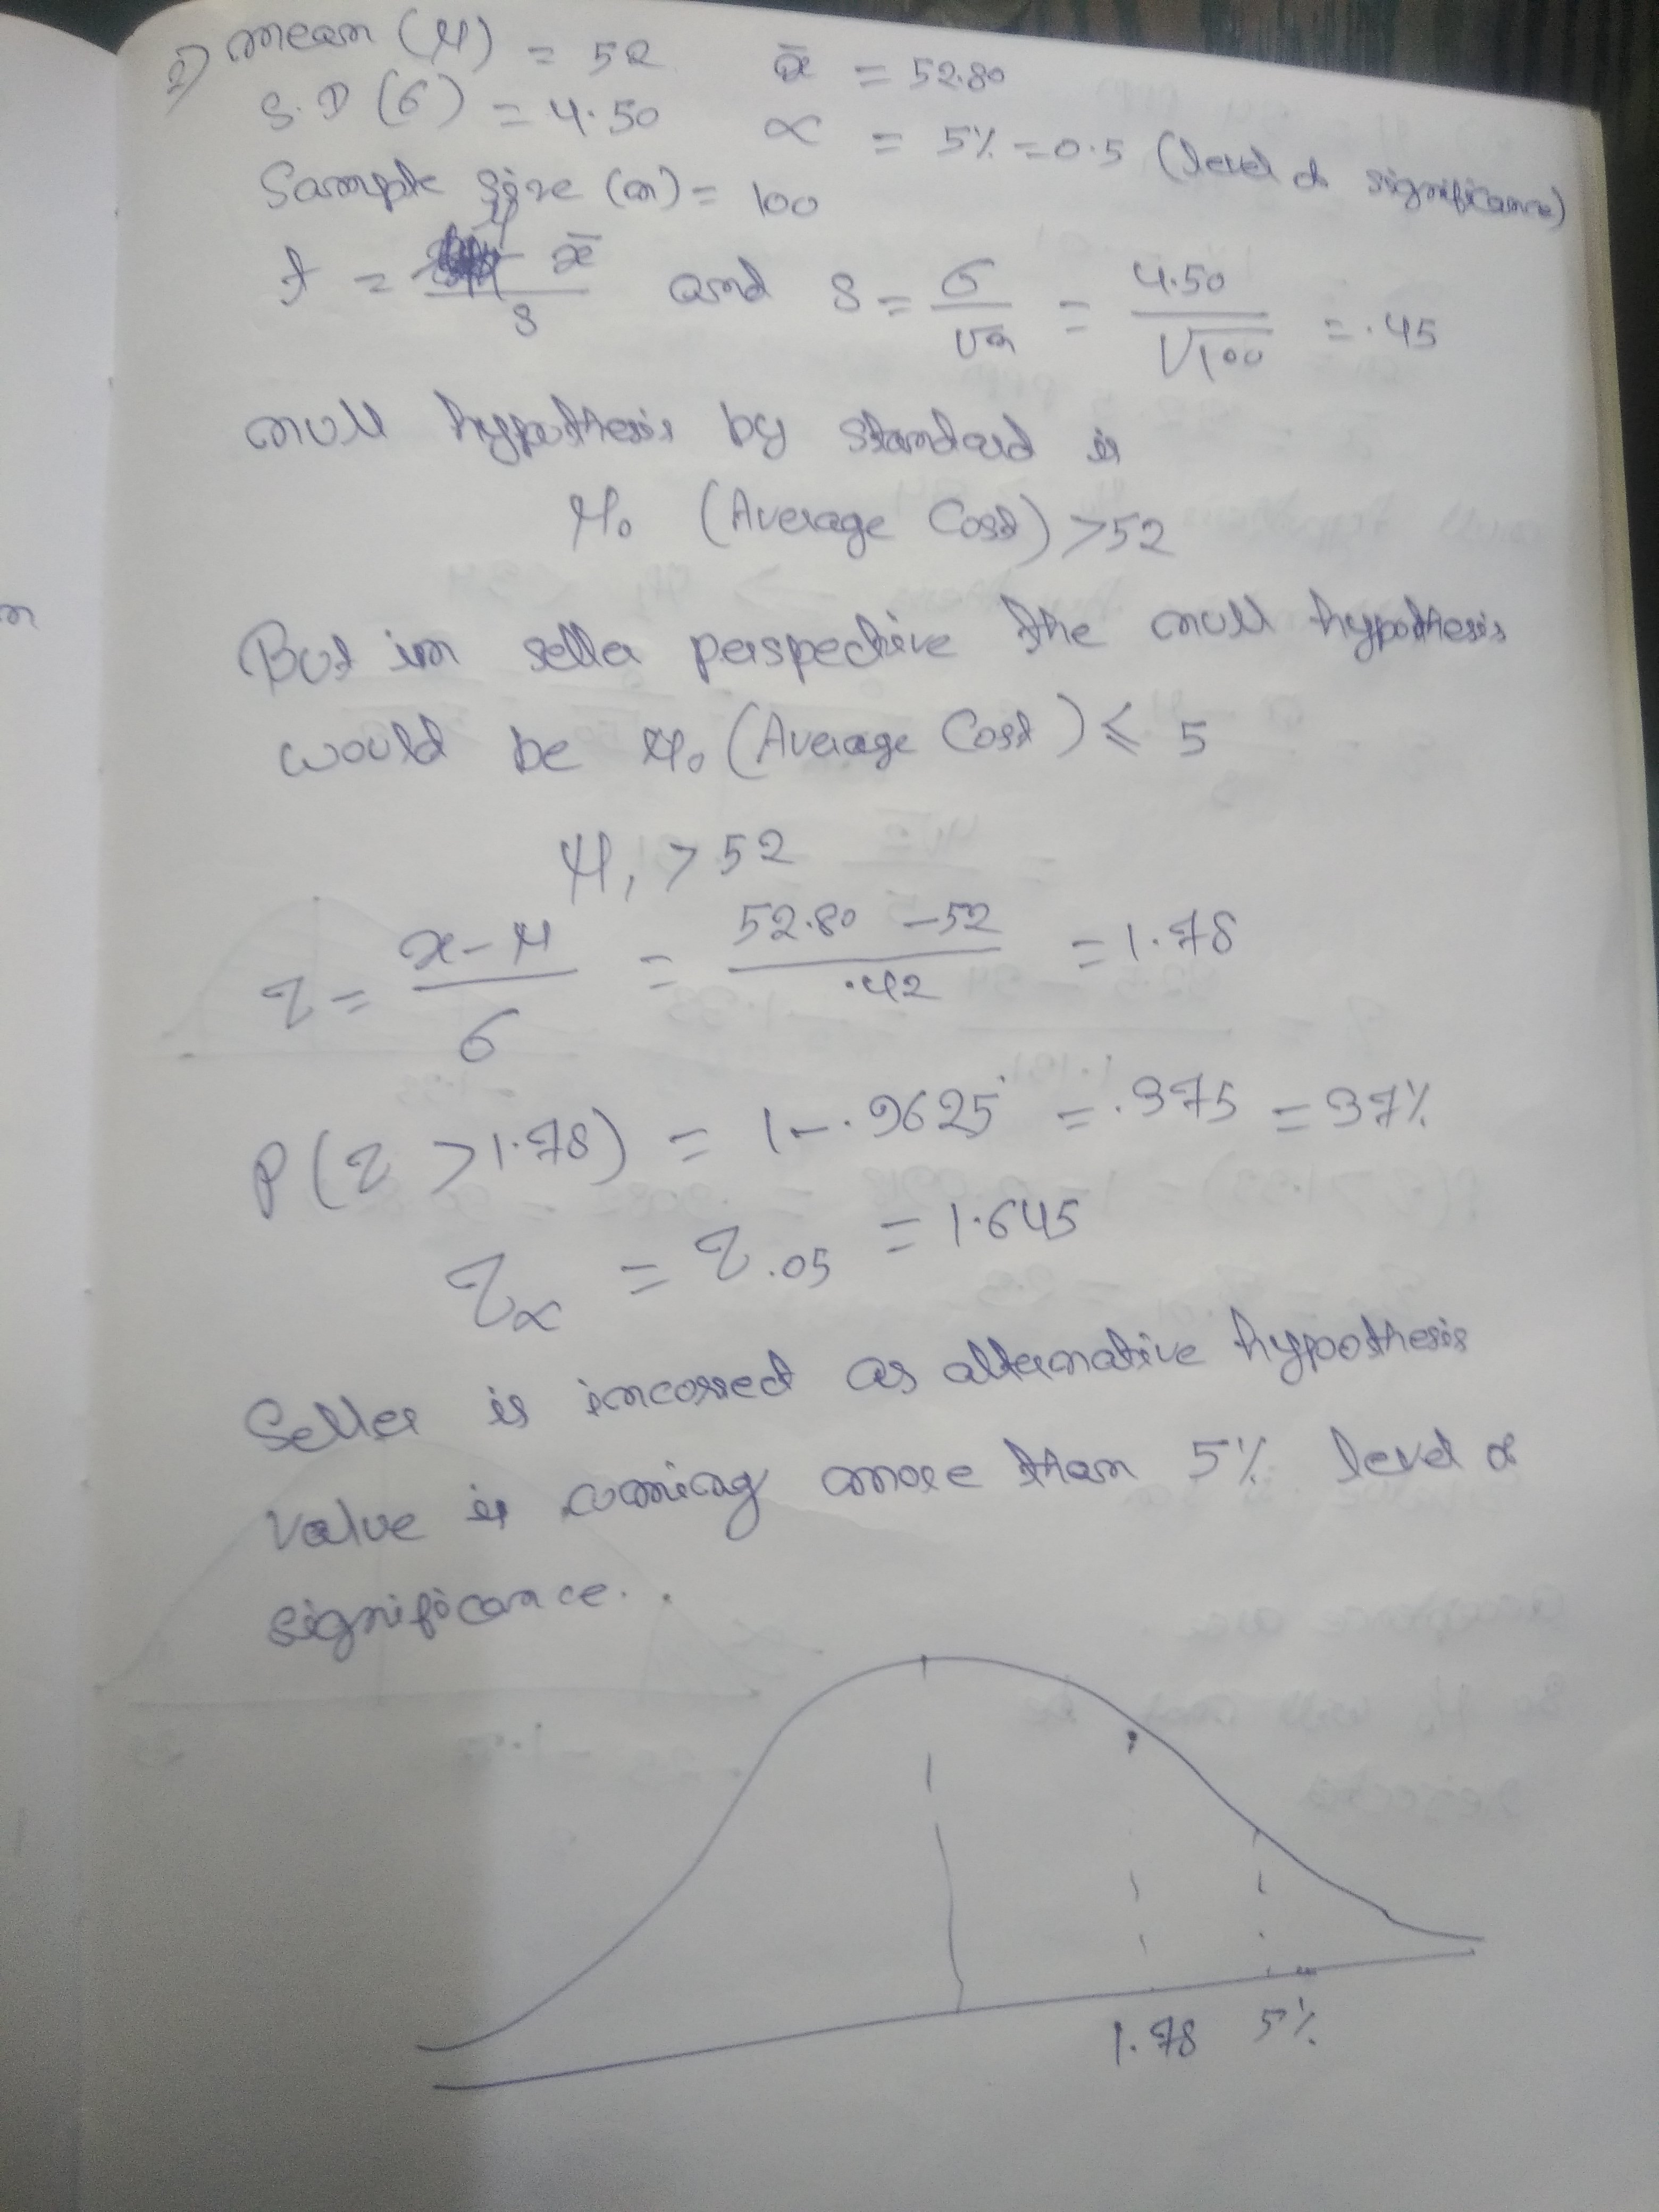 2) mean (μ) = 52   x̄ = 52.80
S.D (σ) = 4.50   α = 5% = 0.5 (level of significance)
Sample size (n) = 100
t = μ - x̄ / s and s = σ / √n = 4.50 / √100 = .45
null hypothesis by standard is
μ₀ (Average Cost) > 52
But in seller perspective the null hypothesis
would be μ₀ (Average Cost) ≤ 5
μ₁ > 52
z = x - μ / σ = 52.80 - 52 / .42 = 1.78
P(z > 1.78) = 1 - .9625 = .375 = 37%
zα = z.05 = 1.645
Seller is incorrect as alternative hypothesis
value is coming more than 5% level of
significance.
1.78 5%